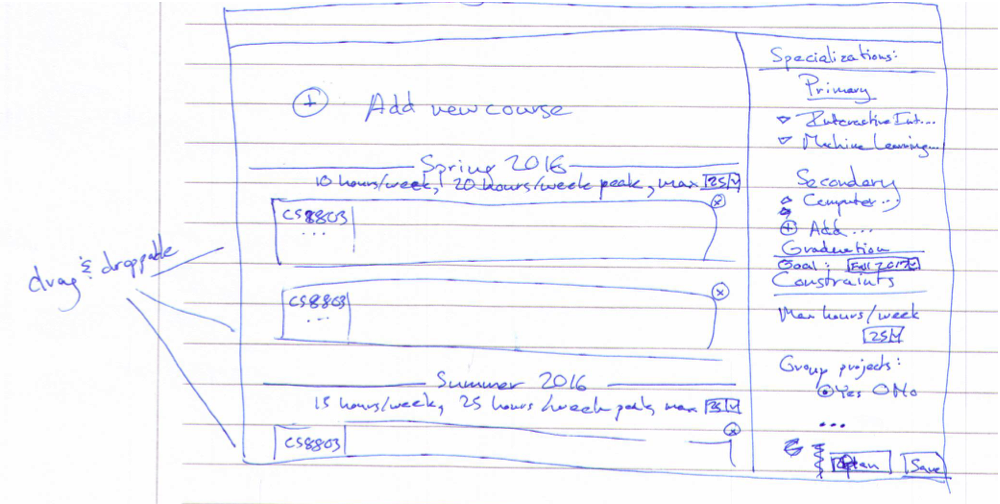 Add new course
Spring 2016
10 hours/week, 20 hours/week peak, max 25
CS8803
...
CS8803
...
Summer 2016
15 hours/week, 25 hours/week peak, max
CS8803
drag & droppable
Specializations:
Primary
Interactive Int...
Machine Learning...
Secondary
Computer...
Add...
Graduation
Goal: Fall 2017
Constraints
Max hours/week
25
Group projects:
Yes No
...
Save